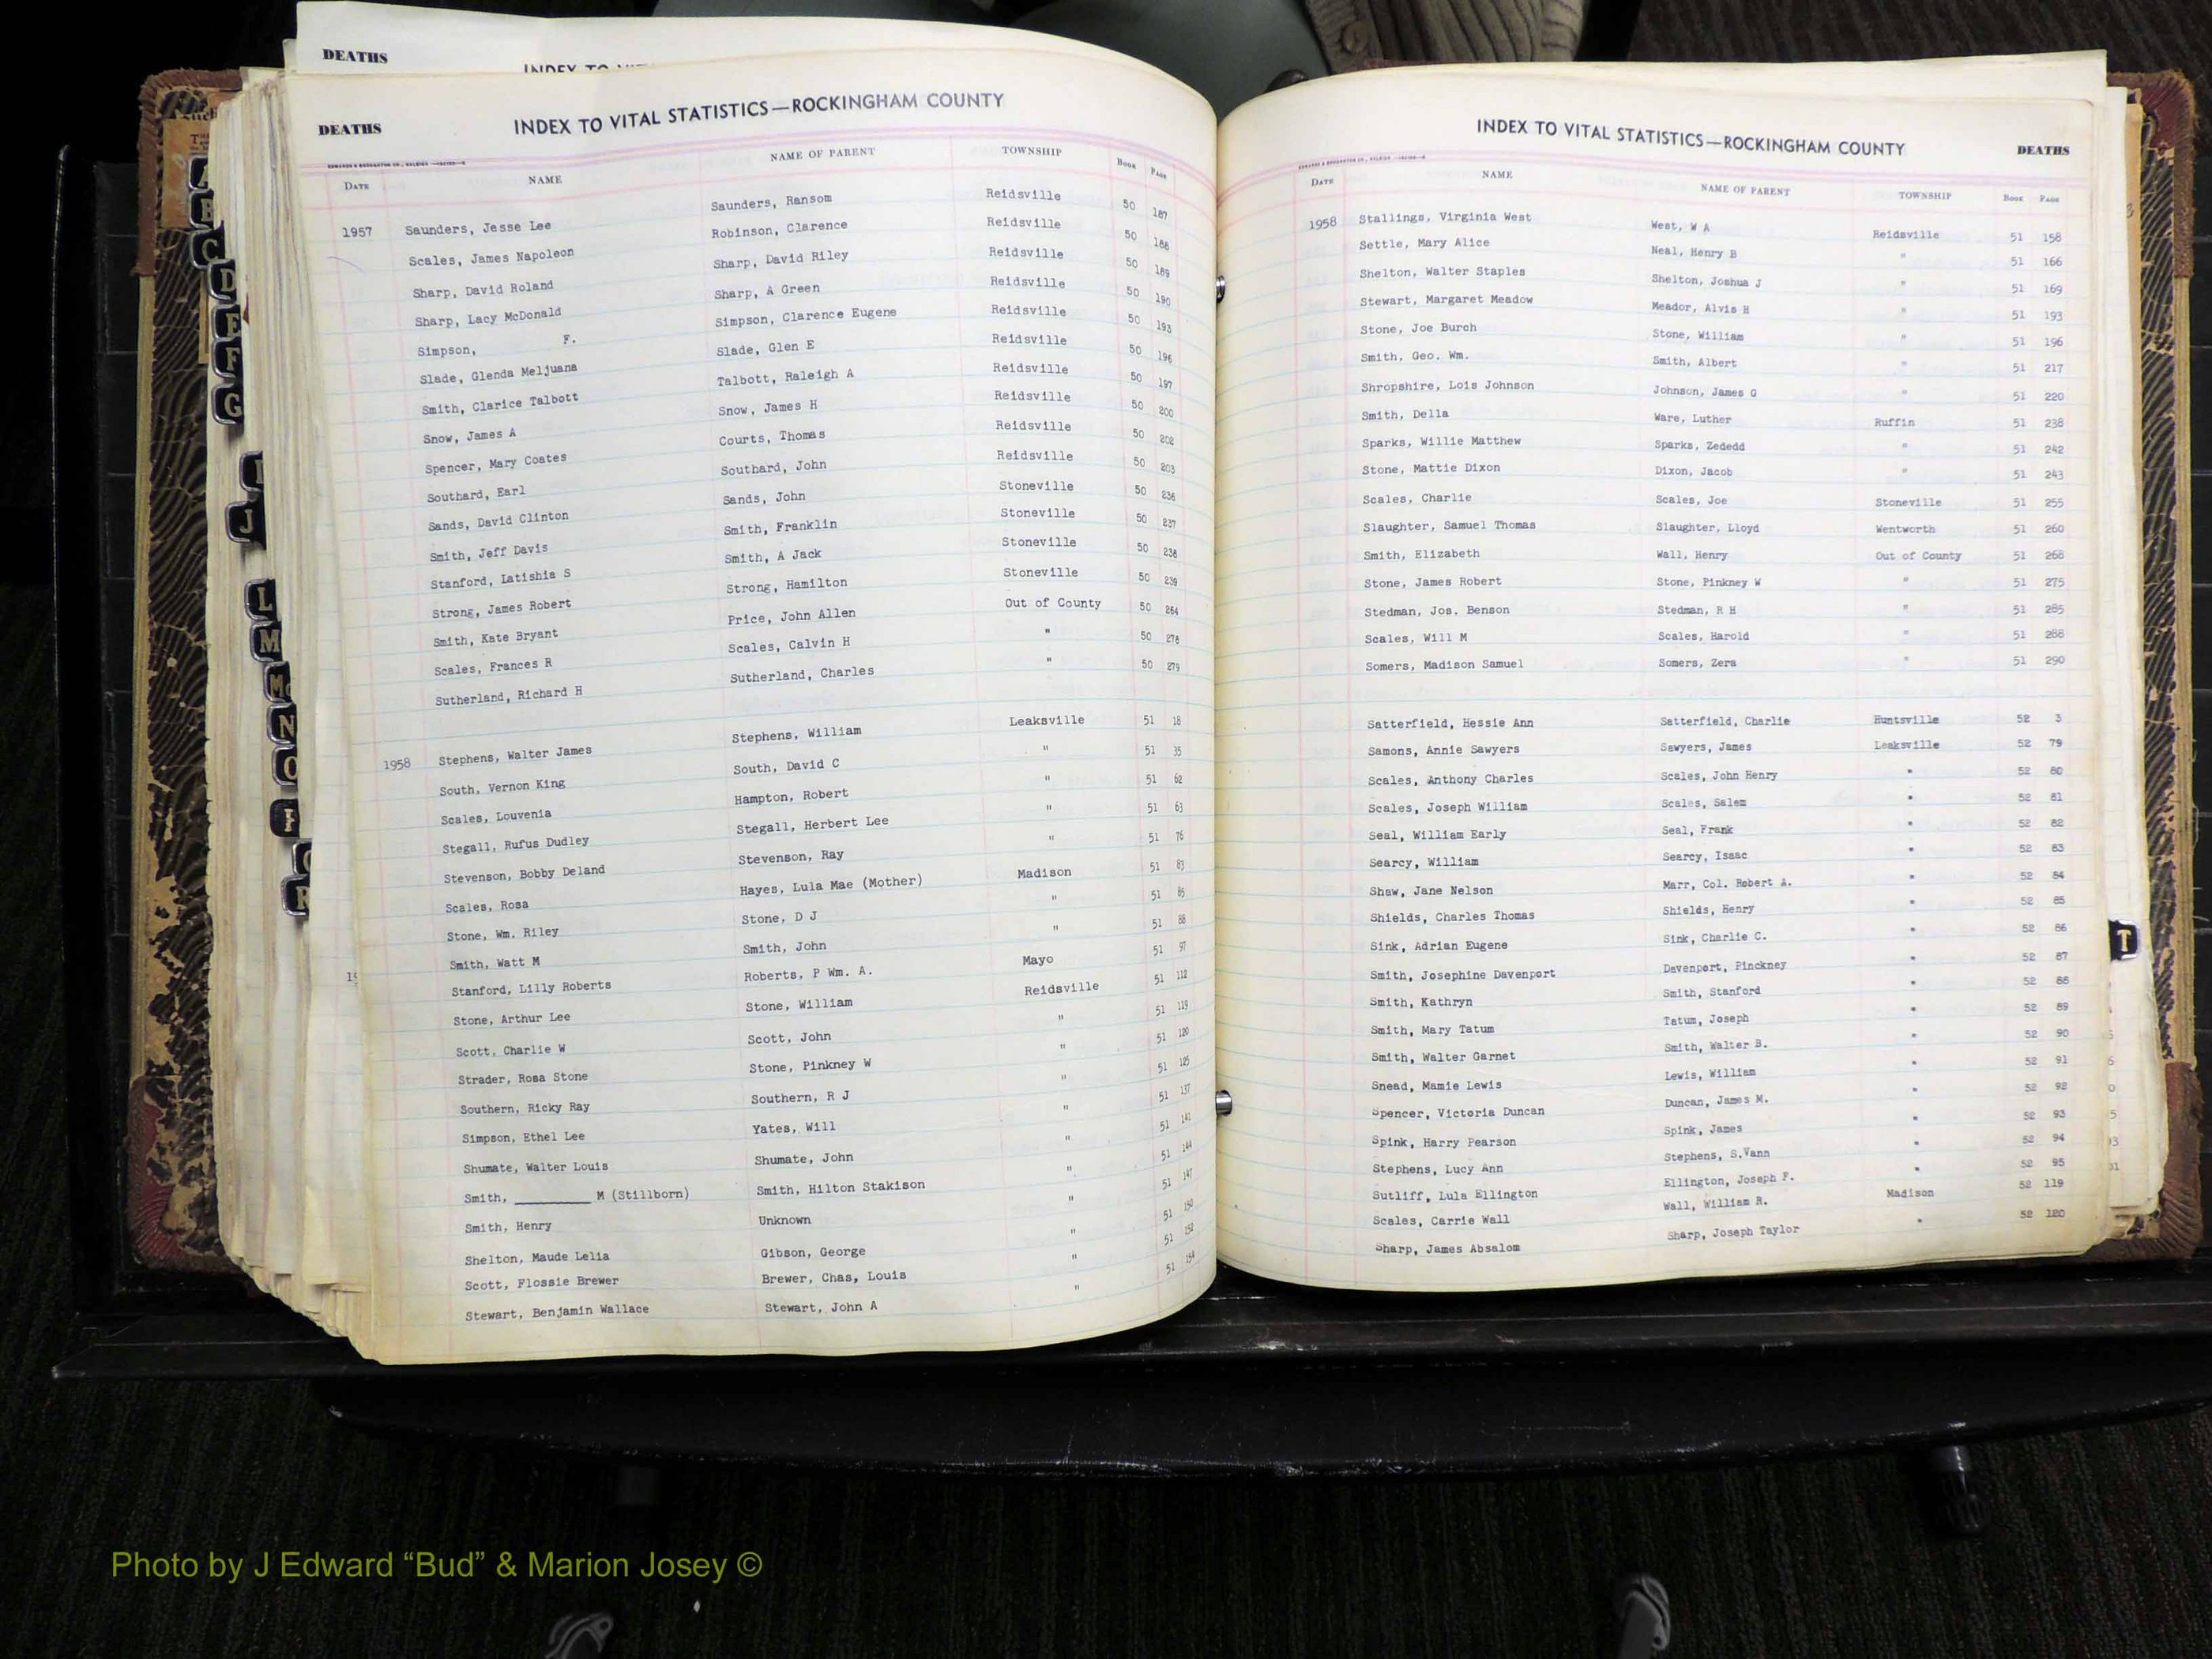 DEATHS
DEATHS INDEX TO VITAL STATISTICS—ROCKINGHAM COUNTY
DATE NAME NAME OF PARENT TOWNSHIP BOOK PAGE
1957 Saunders, Jesse Lee Saunders, Ransom Reidsville 50 187
Scales, James Napoleon Robinson, Clarence Reidsville 50 188
Sharp, David Roland Sharp, David Riley Reidsville 50 189
Sharp, Lacy McDonald Sharp, A Green Reidsville 50 190
Simpson, F. Simpson, Clarence Eugene Reidsville 50 193
Slade, Glenda Meljuana Slade, Glen E Reidsville 50 196
Smith, Clarice Talbott Talbott, Raleigh A Reidsville 50 197
Snow, James A Snow, James H Reidsville 50 200
Spencer, Mary Coates Courts, Thomas Reidsville 50 202
Southard, Earl Southard, John Reidsville 50 203
Sands, David Clinton Sands, John Stoneville 50 236
Smith, Jeff Davis Smith, Franklin Stoneville 50 237
Stanford, Latishia S Smith, A Jack Stoneville 50 238
Strong, James Robert Strong, Hamilton Stoneville 50 239
Smith, Kate Bryant Price, John Allen Out of County 50 264
Scales, Frances R Scales, Calvin H " 50 278
Sutherland, Richard H Sutherland, Charles " 50 279
1958 Stephens, Walter James Stephens, William Leaksville 51 18
South, Vernon King South, David C " 51 35
Scales, Louvenia Hampton, Robert " 51 62
Stegall, Rufus Dudley Stegall, Herbert Lee " 51 63
Stevenson, Bobby Deland Stevenson, Ray " 51 76
Scales, Rosa Hayes, Lula Mae (Mother) Madison 51 83
Stone, Wm. Riley Stone, D J " 51 85
Smith, Watt M Smith, John " 51 88
Stanford, Lilly Roberts Roberts, P Wm. A. Mayo 51 97
Stone, Arthur Lee Stone, William Reidsville 51 112
Scott, Charlie W Scott, John " 51 119
Strader, Rosa Stone Stone, Pinkney W " 51 120
Southern, Ricky Ray Southern, R J " 51 125
Simpson, Ethel Lee Yates, Will " 51 137
Shumate, Walter Louis Shumate, John " 51 141
Smith, ________ M (Stillborn) Smith, Hilton Stakison " 51 144
Smith, Henry Unknown " 51 147
Shelton, Maude Lelia Gibson, George " 51 150
Scott, Flossie Brewer Brewer, Chas, Louis " 51 152
Stewart, Benjamin Wallace Stewart, John A " 51 154
INDEX TO VITAL STATISTICS—ROCKINGHAM COUNTY DEATHS
DATE NAME NAME OF PARENT TOWNSHIP BOOK PAGE
1958 Stallings, Virginia West West, W A Reidsville 51 158
Settle, Mary Alice Neal, Henry B " 51 166
Shelton, Walter Staples Shelton, Joshua J " 51 169
Stewart, Margaret Meadow Meador, Alvis H " 51 193
Stone, Joe Burch Stone, William " 51 196
Smith, Geo. Wm. Smith, Albert " 51 217
Shropshire, Lois Johnson Johnson, James G " 51 220
Smith, Della Ware, Luther Ruffin 51 238
Sparks, Willie Matthew Sparks, Zededd " 51 242
Stone, Mattie Dixon Dixon, Jacob " 51 243
Scales, Charlie Scales, Joe Stoneville 51 255
Slaughter, Samuel Thomas Slaughter, Lloyd Wentworth 51 260
Smith, Elizabeth Wall, Henry Out of County 51 268
Stone, James Robert Stone, Pinkney W " 51 275
Stedman, Jos. Benson Stedman, R H " 51 285
Scales, Will M Scales, Harold " 51 288
Somers, Madison Samuel Somers, Zera " 51 290
Satterfield, Hessie Ann Satterfield, Charlie Huntsville 52 3
Samons, Annie Sawyers Sawyers, James Leaksville 52 79
Scales, Anthony Charles Scales, John Henry " 52 80
Scales, Joseph William Scales, Salem " 52 81
Seal, William Early Seal, Frank " 52 82
Searcy, William Searcy, Isaac " 52 83
Shaw, Jane Nelson Marr, Col. Robert A. " 52 84
Shields, Charles Thomas Shields, Henry " 52 85
Sink, Adrian Eugene Sink, Charlie C. " 52 86
Smith, Josephine Davenport Davenport, Pinckney " 52 87
Smith, Kathryn Smith, Stanford " 52 88
Smith, Mary Tatum Tatum, Joseph " 52 89
Smith, Walter Garnet Smith, Walter B. " 52 90
Snead, Mamie Lewis Lewis, William " 52 91
Spencer, Victoria Duncan Duncan, James M. " 52 92
Spink, Harry Pearson Spink, James " 52 93
Stephens, Lucy Ann Stephens, S.Vann " 52 94
Sutliff, Lula Ellington Ellington, Joseph F. " 52 95
Scales, Carrie Wall Wall, William R. Madison 52 119
Sharp, James Absalom Sharp, Joseph Taylor " 52 120
C
D
E
F
G
I
J
L
M
Mc
N
O
P
R
T
Photo by J Edward “Bud” & Marion Josey ©